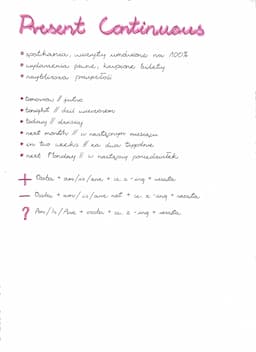 Present Continuous
• spotkania, wizyty umówione na 100%
• wydarzenia pewne, kupione bilety
• najbliższa przyszłość
• tomorrow // jutro
• tonight // dziś wieczorem
• today // dzisiaj
• next month // w następnym miesiącu
• in two weeks // za dwa tygodnie
• next Monday // w następny poniedziałek
+ Osoba + am/is/are + cz. z -ing + reszta
- Osoba + am/is/are not + cz. z -ing + reszta
? Am/Is/Are + osoba + cz. z -ing + reszta